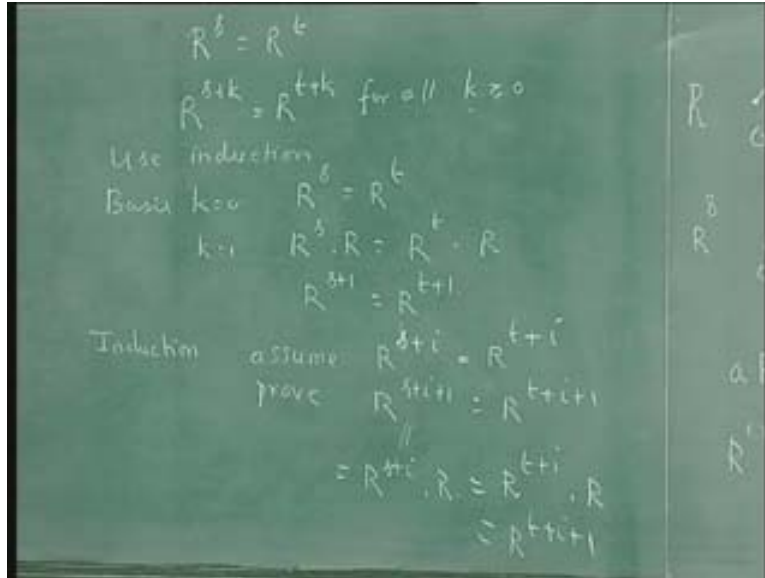 R^s = R^t
R^{s+k} = R^{t+k} for all k ≥ 0
Use induction
Basis k=0 R^s = R^t
k=1 R^s . R = R^t . R
R^{s+1} = R^{t+1}
Induction assume R^{s+i} = R^{t+i}
prove R^{s+i+1} = R^{t+i+1}
//
= R^{s+i} . R = R^{t+i} . R
= R^{t+i+1}
R
R^s
a
R